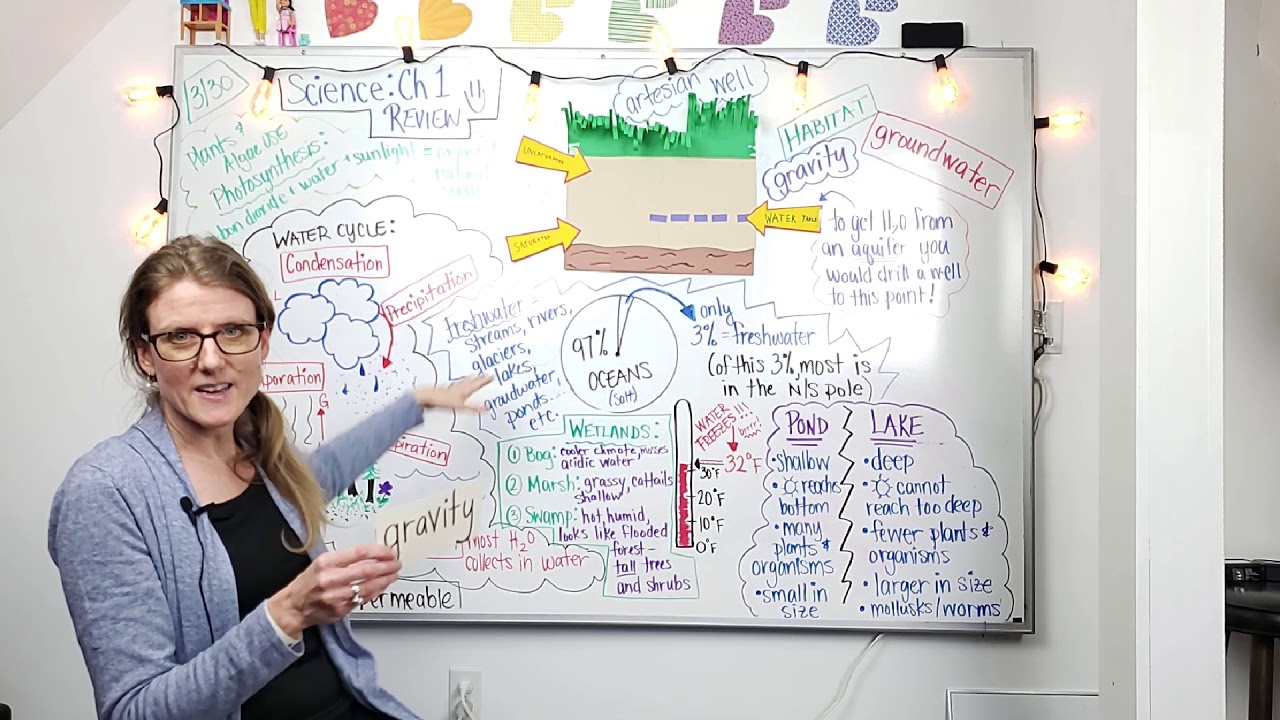 3/30
Science: Ch 1
REVIEW
Plants &
Algae use
Photosynthesis:
bon dioxide + water + sunlight =
WATER CYCLE:
Condensation
Precipitation
poration
piration
gravity
permeable
most H2O
collects in water
freshwater =
streams, rivers,
glaciers,
lakes,
groudwater,
ponds...
etc.
artesian well
UNSATURATED
SATURATED
WATER TABLE
97%
OCEANS
(salt)
only
3% = freshwater
(of this 3%, most is
in the N/S pole)
HABITAT
gravity
groundwater
to get H2O from
an aquifer you
would drill a well
to this point!
WETLANDS:
① Bog: cooler climate, mosses
acidic water
② Marsh: grassy, cattails
shallow
③ Swamp: hot, humid,
looks like flooded
forest –
tall trees
and shrubs
WATER
FREEZES!!!
brrr!
32°F
30°F
20°F
10°F
0°F
POND
•shallow
• reaches
bottom
• many
plants &
organisms
•small in
size
LAKE
•deep
• cannot
reach too deep
•fewer plants &
organisms
• larger in size
• mollusks/worms